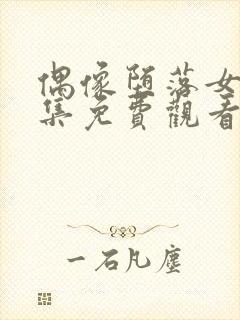 偶像堕落女
集免費觀看
一石凡塵